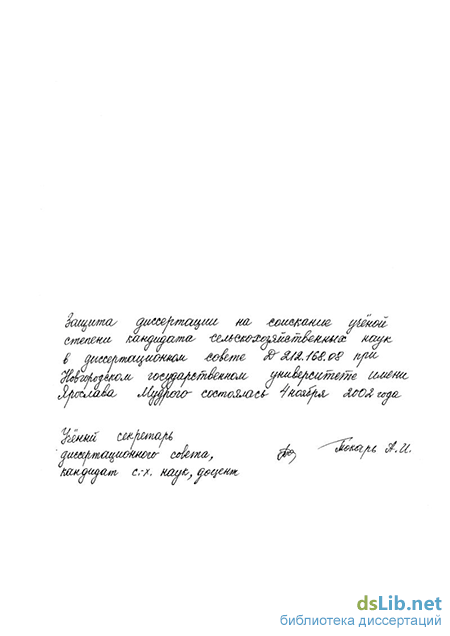 Защита диссертации на соискание учёной
степени кандидата сельскохозяйственных наук
в диссертационном совете Д 212.168.08 при
Новгородском государственном университете имени
Ярослава Мудрого состоялась 4 ноября 2002 года
Учёный секретарь
диссертационного совета,
кандидат с.-х. наук, доцент
Токарь А.И.
dsLib.net
библиотека диссертаций